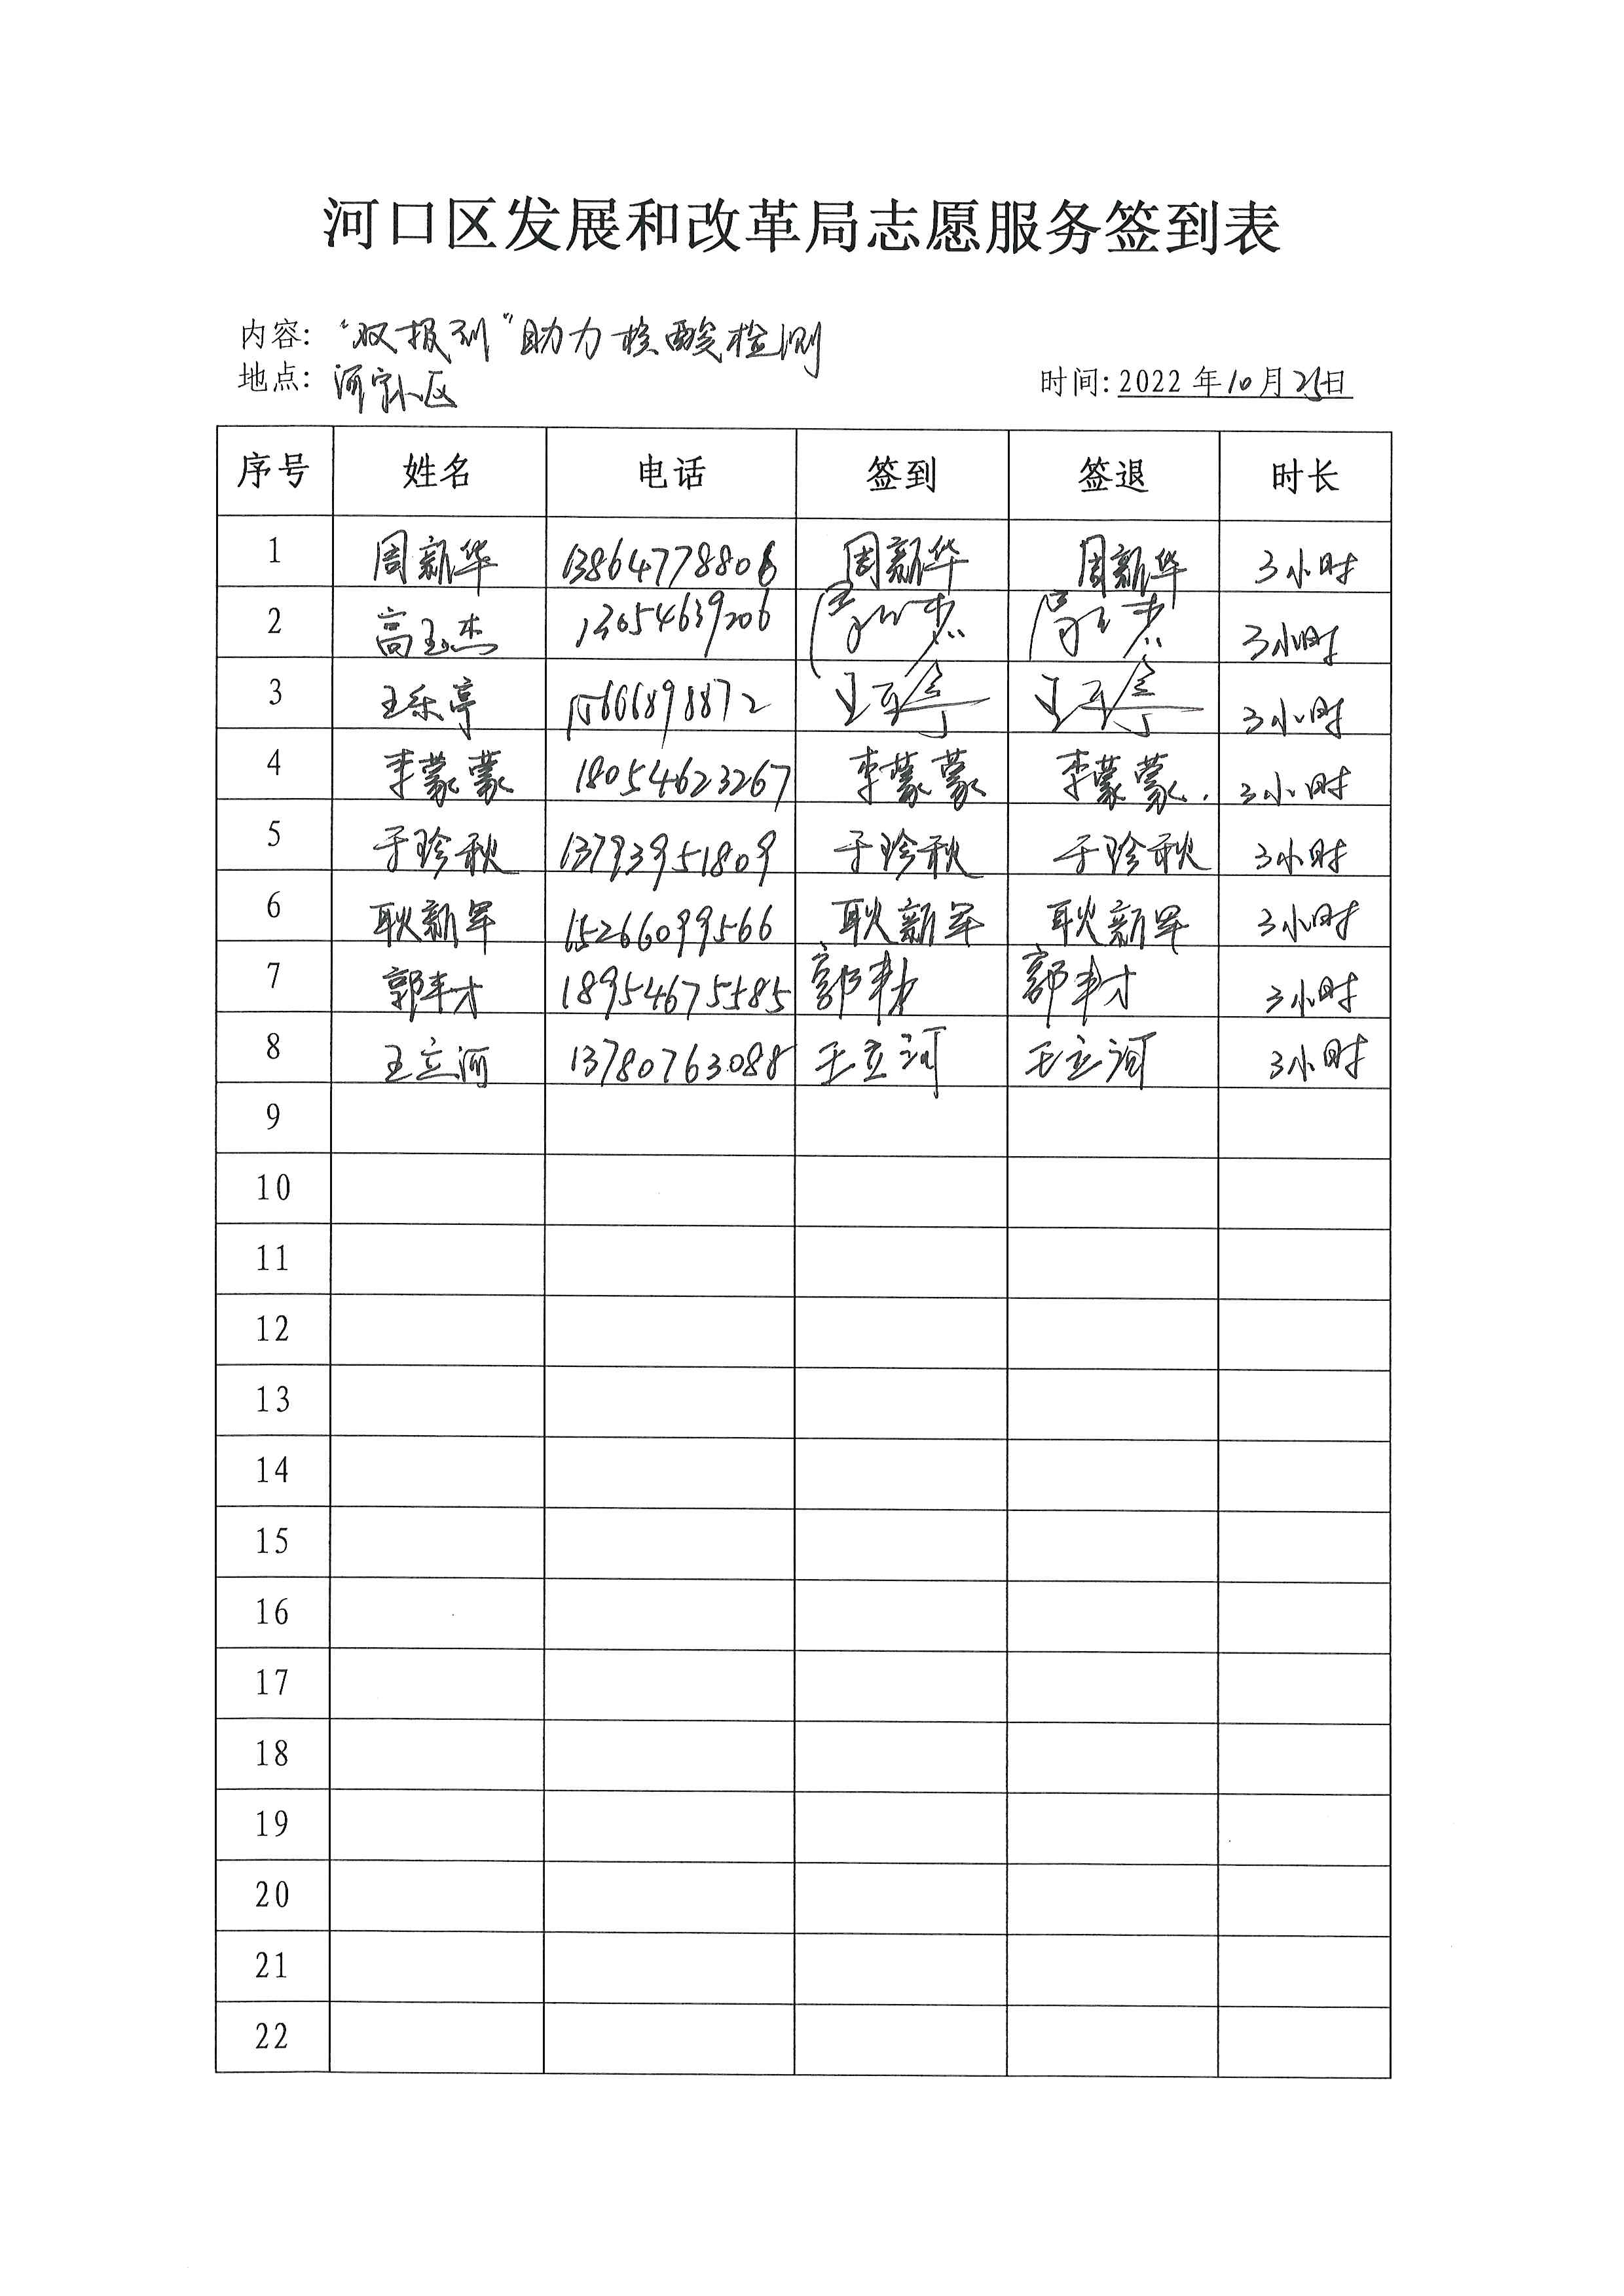 河口区发展和改革局志愿服务签到表
内容: “双报到”助力核酸检测
地点: 河宁小区 时间: 2022年10月25日
序号 姓名 电话 签到 签退 时长
1 周新华 13864778806 周新华 周新华 3小时
2 高玉杰 13054639206 高玉杰 高玉杰 3小时
3 王乐亭 15666898872 王乐亭 王乐亭 3小时
4 李蒙蒙 18054623267 李蒙蒙 李蒙蒙 3小时
5 于珍秋 13793951809 于珍秋 于珍秋 3小时
6 耿新军 15266099566 耿新军 耿新军 3小时
7 郭丰才 18954675585 郭丰才 郭丰才 3小时
8 王立河 13780763088 王立河 王立河 3小时
9
10
11
12
13
14
15
16
17
18
19
20
21
22